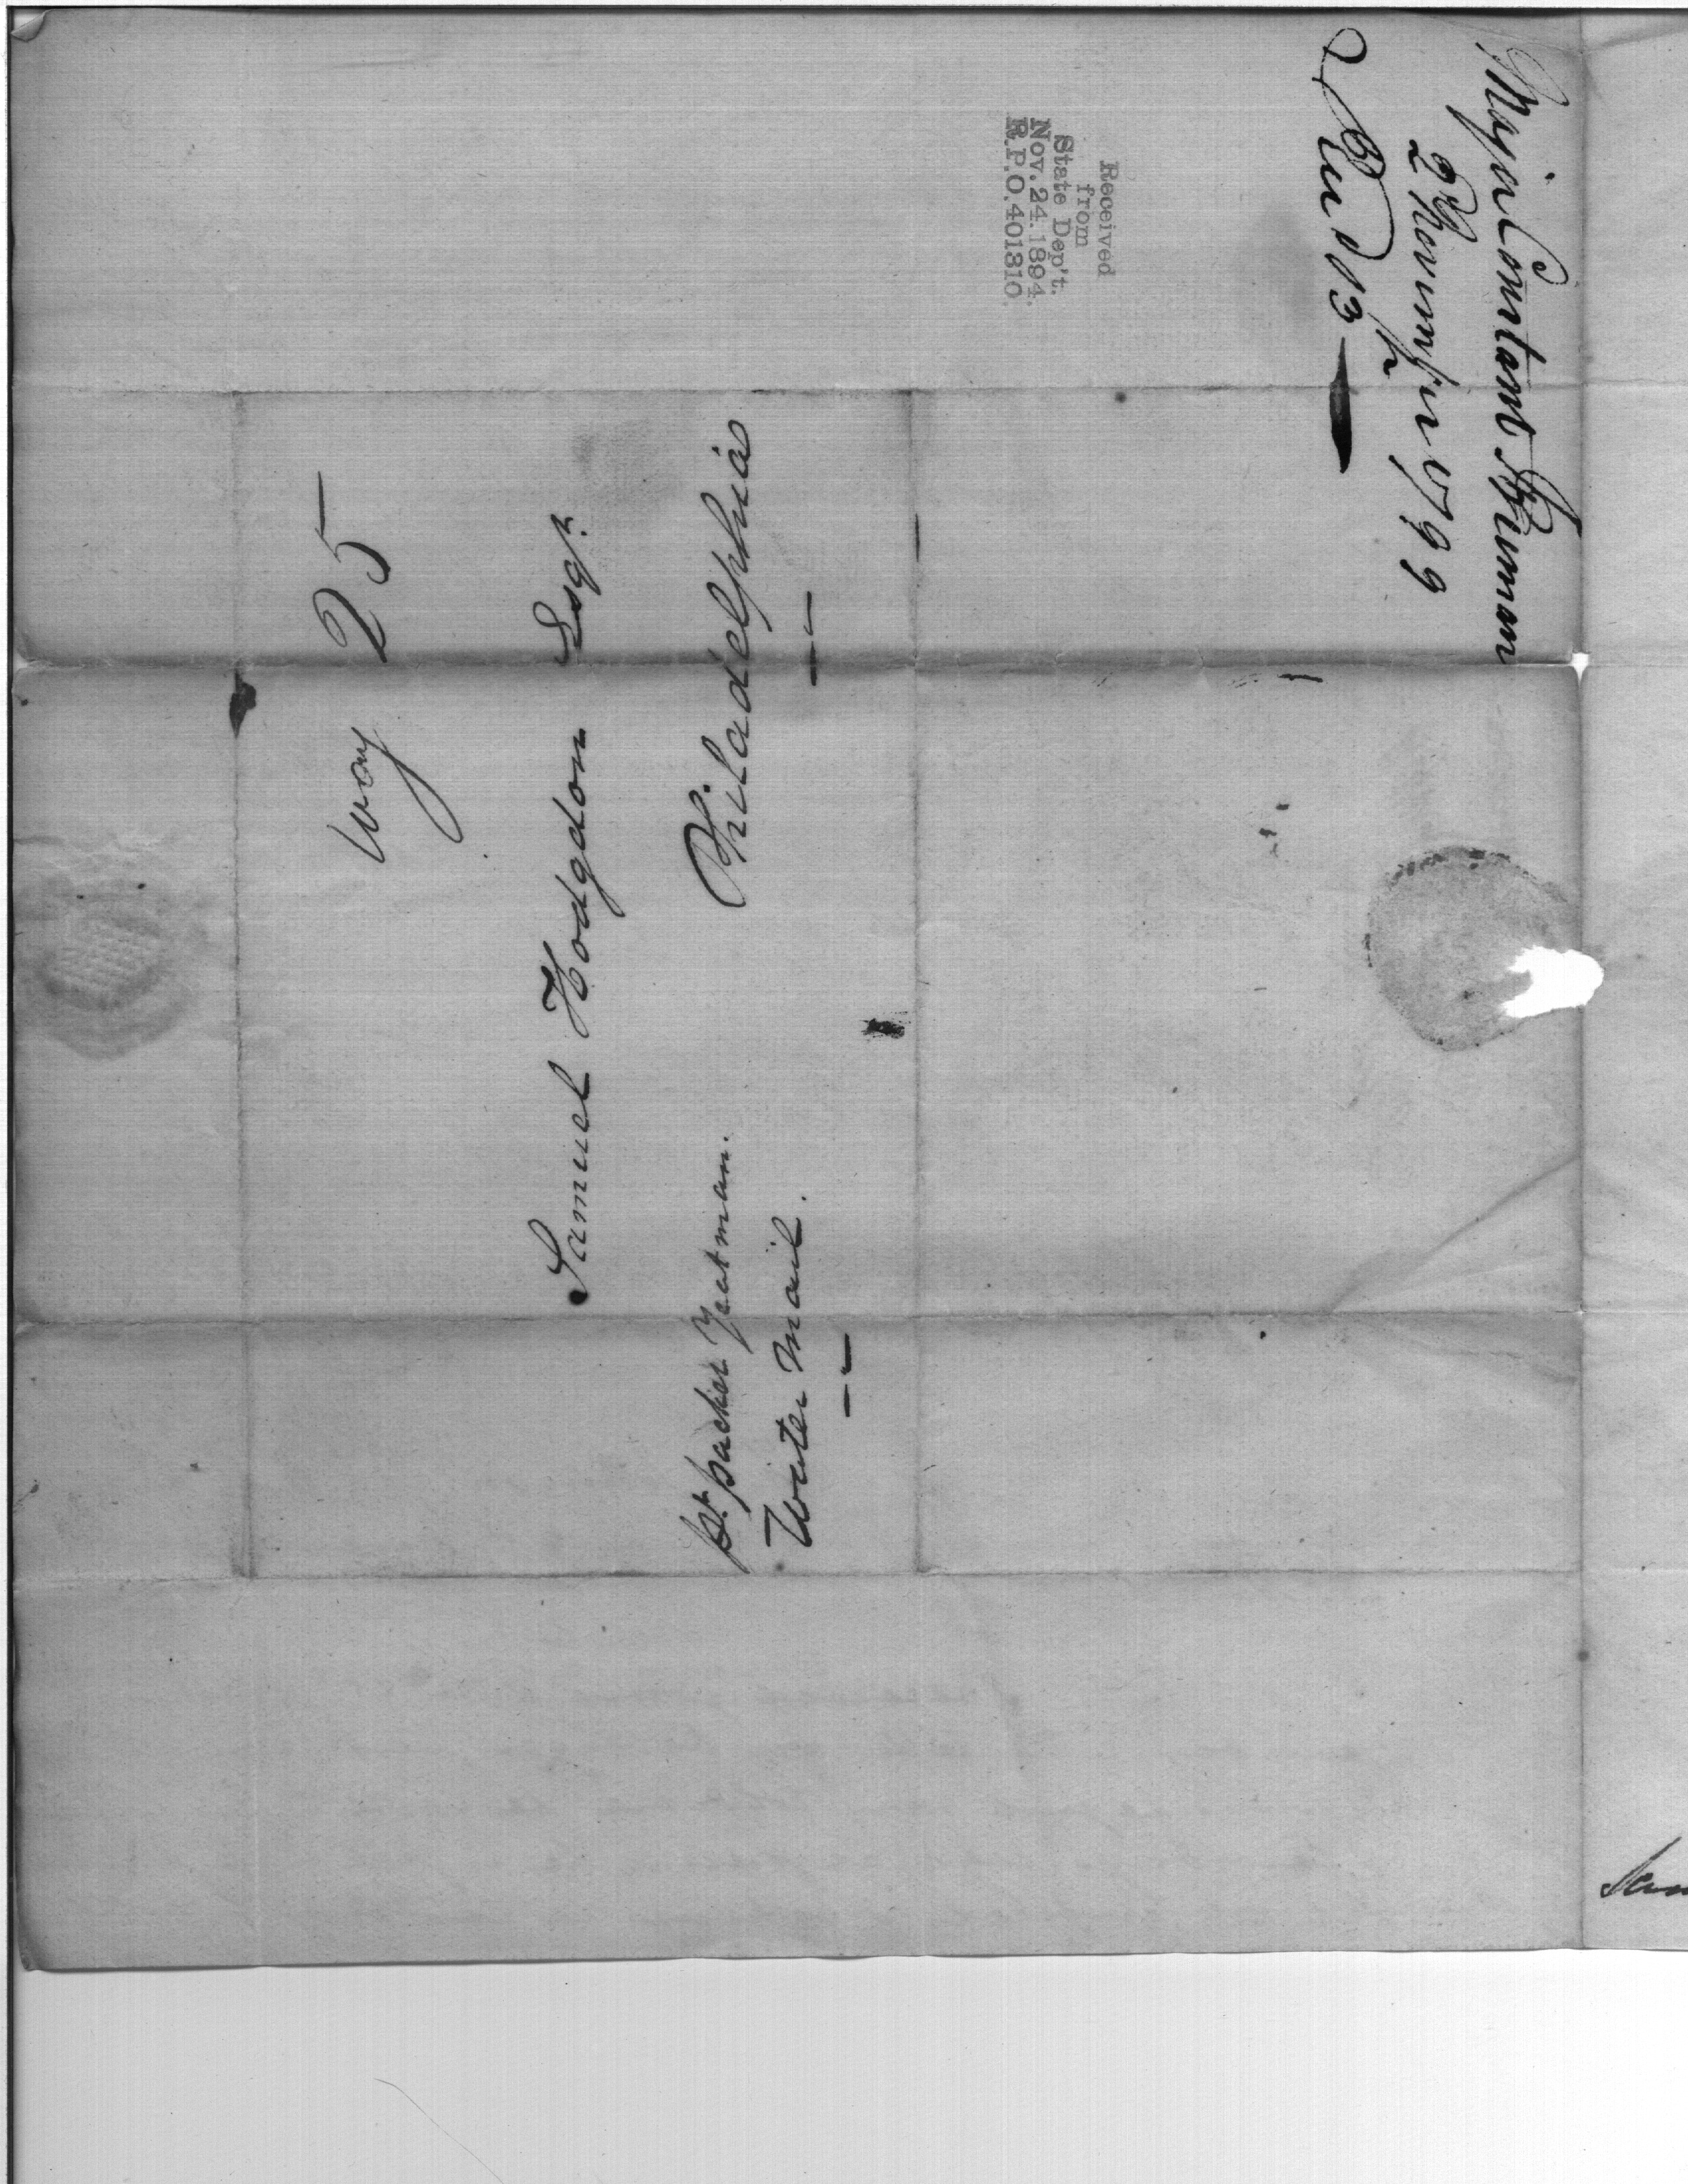 Major Constant Freeman
2d November 1799
Recd 13th
Received
from
State Dep't.
Nov. 24. 1894.
R.P.O. 401310.
Way 25
Samuel Hodgdon Esqr.
Philadelphia
pr. packet Yeatman.
Water Mail.
Sam